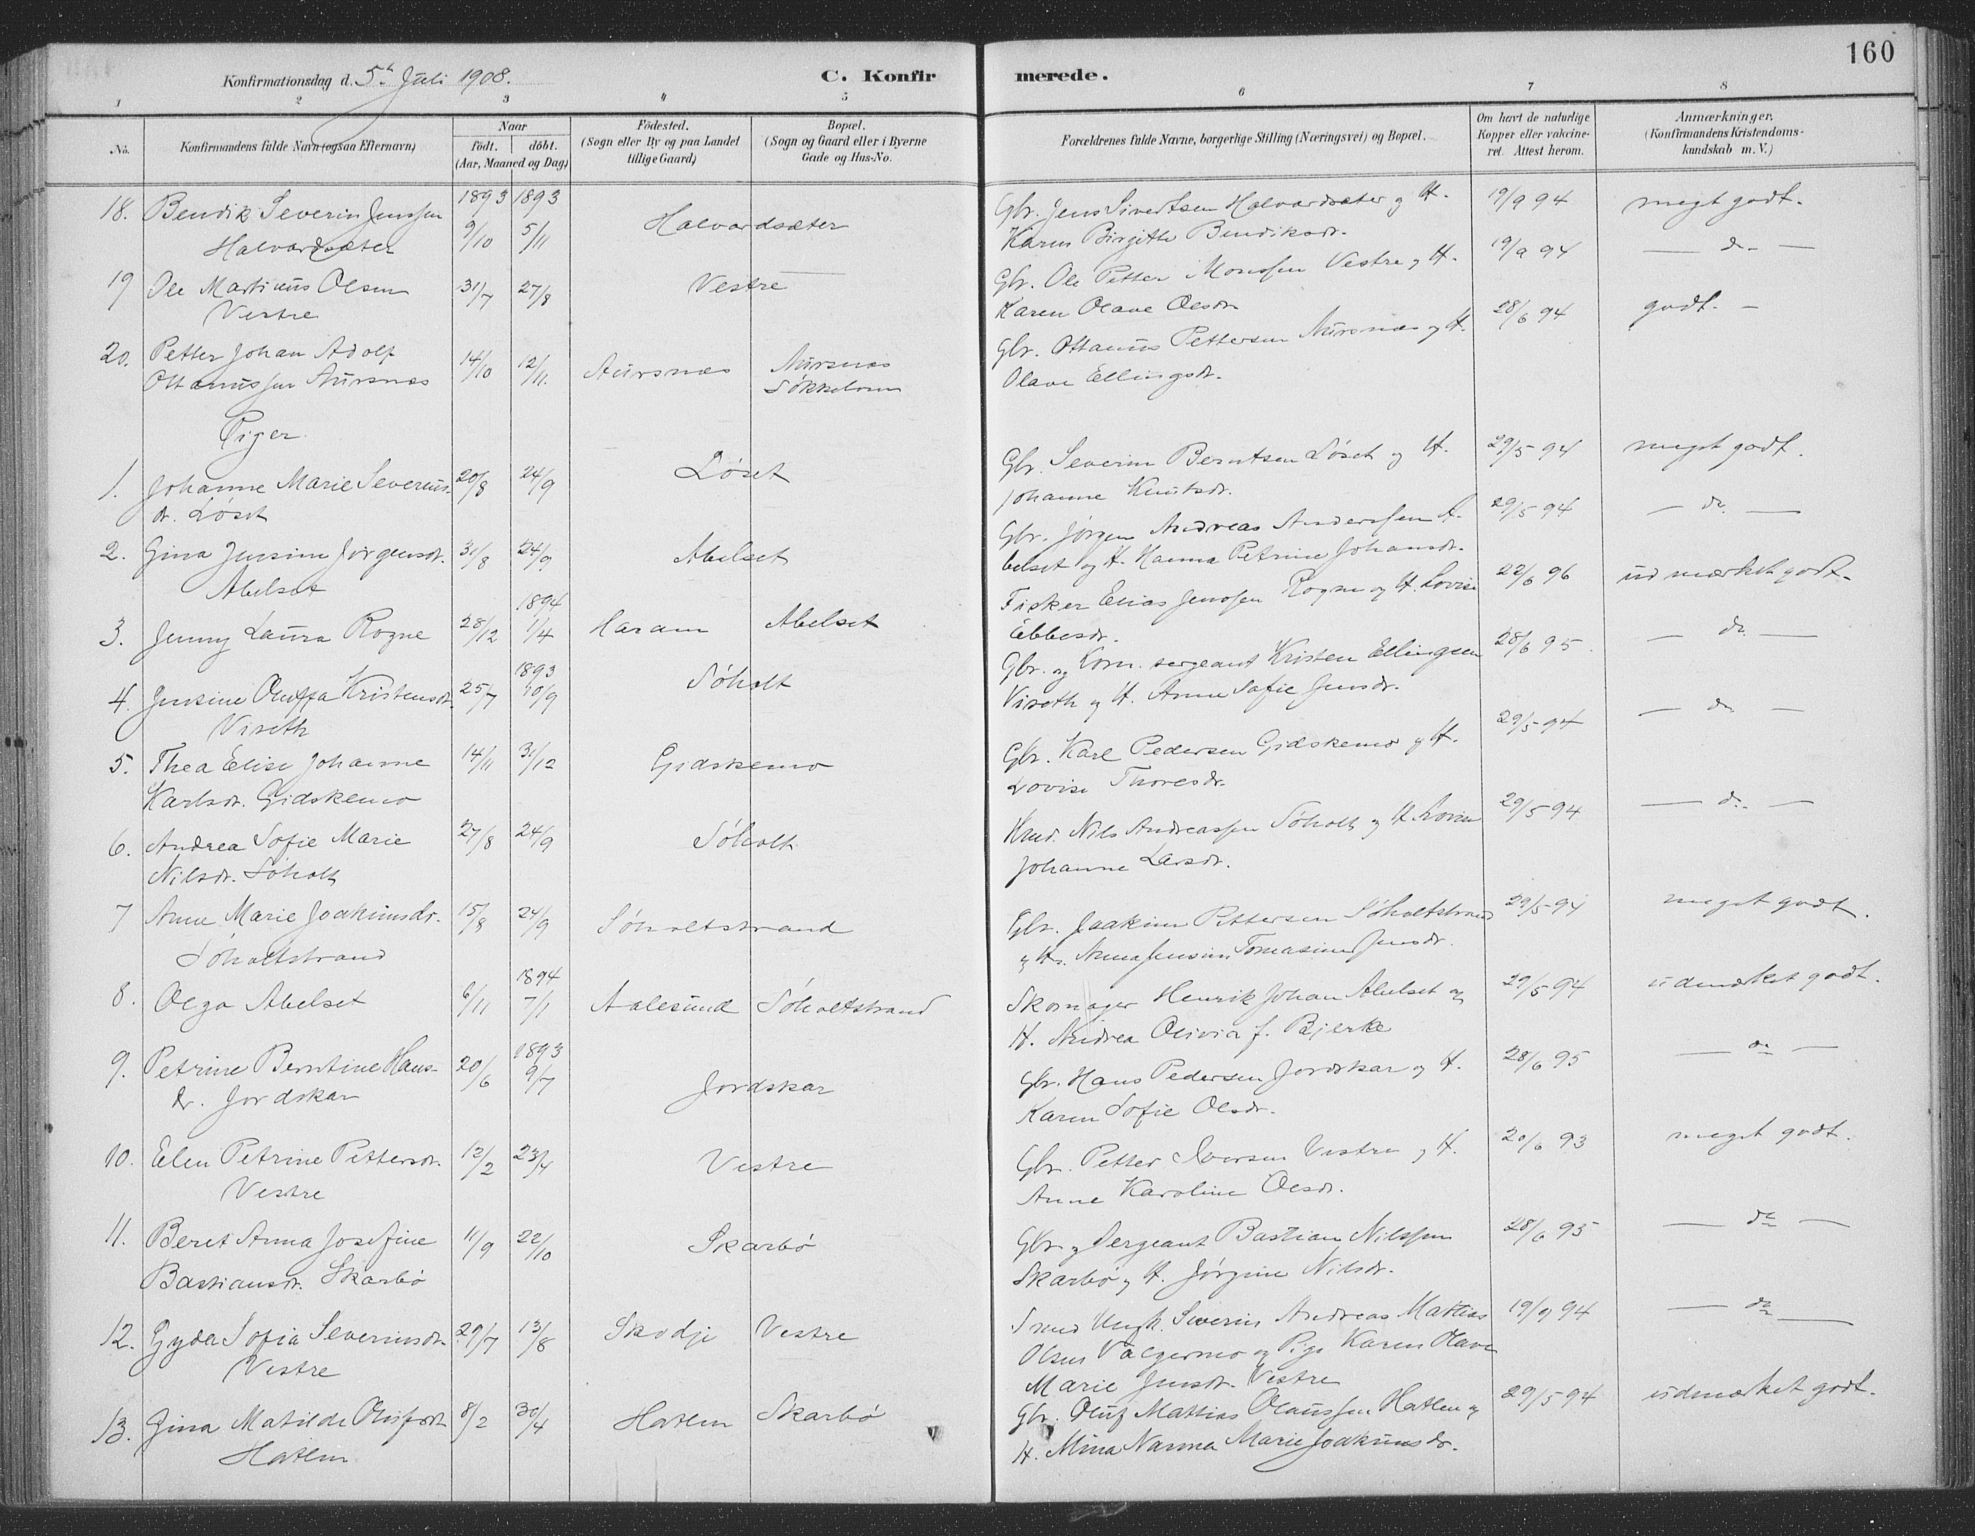 160
Konfirmationsdag d. 5te Juli 1908. C. Konfirmerede.
1 2 3 4 5 6 7 8
No. Konfirmandens fulde Navn (ogsaa Efternavn) Naar født. døbt. (Aar, Maaned og Dag) Födested. (Sogn eller By og paa Landet tillige Gaard) Bopæl. (Sogn og Gaard eller i Byerne Gade og Hus-No. Forældrenes fulde Navne, borgerlige Stilling (Næringsvei) og Bopæl. Om havt de naturlige Kopper eller vakcineret. Attest herom. Anmærkninger. (Konfirmandens Kristendomskundskab m. V.)
18. Bendik Severin Jenssen 1893 9/10 1893 5/11 Halvardsæter Gbr. Jens Sivertsen Halvardsæter og H. 19/9 94 megt godt.
Halvardsæter Karen Birgitte Bendiksdr.
19 Ole Martinus Olsen 31/7 27/8 Vestre Gbr. Ole Petter Monssen Vestre og H. 19/9 94 — do —
Vestre Karen Olave Olsdr.
20. Petter Johan Adolf 14/10 12/11. Aursnæs Aursnæs Gbr. Ottanus Pettersen Aursnæs og H. 28/6 94 godt. —
Ottanussen Aursnæs Søkkelven Olave Ellingsdr.
Piger.
1. Johanne Marie Severins- 20/8 24/9 Løset Gbr. Severin Berntsen Løset og H. 29/5 94 meget godt.
dr. Løset Johanne Knutsdr.
2. Gina Jensine Jørgensdr. 31/8 24/9 Abelset Gbr. Jørgen Andreas Anderssen A- 29/5 94 — do —
Abelset belset og H. Hanna Petrine Johansdr.
3. Jenny Laura Rogne 28/12 1894 1/4 Haram Abelset Fisker Elias Jenssen Rogne og H. Lovise 22/6 96 udmærket godt.
Ebbesdr.
4. Jensine Oluffa Kristensdr. 25/7 1893 10/9 Søholt Gbr. og Korn. sergeant Kristen Ellingsen 28/6 95. — do —
Viseth Viseth og H. Anne Sofie Jensdr.
5. Thea Elise Johanne 14/11 31/12 Gidskemo Gbr. Karl Pedersen Gidskemo og H. 29/5 94 — do —
Karlsdr. Gidskemo Lovise Thoresdr.
6. Andrea Sofie Marie 27/8 24/9 Søholt Hmd. Nils Andreassen Søholt og H. Lovise 29/5 94 — do —
Nilsdr. Søholt Johanne Larsdr.
7 Anne Marie Joakimsdr. 15/8 24/9 Søholtstrand Gbr. Joakim Pettersen Søholtstrand 29/5 94 meget godt.
Søholtstrand og H. Anna Jensine Tomasine Jensdr.
8. Olga Abelset 6/11 1894 7/1 Aalesund Søholtstrand Skomager Henrik Johan Abelset og 29/5 94 udmærket godt.
H. Andrea Olivia f. Bjerke
9. Petrine Berntine Hans- 20/6 1893 9/7 Jordskar Gbr. Hans Pedersen Jordskar og H. 28/6 95 — do —
dr. Jordskar Karen Sofie Olsdr.
10. Elen Petrine Pettersdr. 12/2 23/4 Vestre Gbr. Petter Iversen Vestre og H. 20/6 93 meget godt.
Vestre Anne Karoline Olsdr.
11. Beret Anna Josefine 11/9 22/10 Skarbø Gbr. og Sergeant Bastian Nilssen 28/6 95 — do —
Bastiansdr. Skarbø Skarbø og H. Jørgine Nilsdr.
12. Gyda Sofia Severinsdr. 29/7 13/8 Skodje Vestre Smed Ungk. Severin Andreas Mattias 19/9 94 — do —
Vestre Olsen Valgermo og Pige Karen Olave
Marie Jensdr. Vestre
13. Gina Matilde Olufsdr. 8/2 30/4 Hatlen Skarbø Gbr. Oluf Mattias Olaussen Hatlen og 29/5 94 udmærket godt.
Hatlen H. Mina Nanna Marie Joakimsdr.